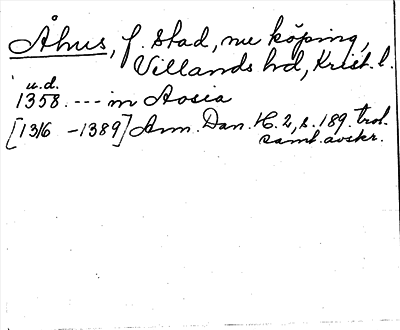 Åhus, f. stad, nu köping,
Villands hd, Krist. l.
u.d.
1358. --- in Aosia
[1316 -1389] Ann. Dan. H. 2, s. 189. trol.
samt. avskr.